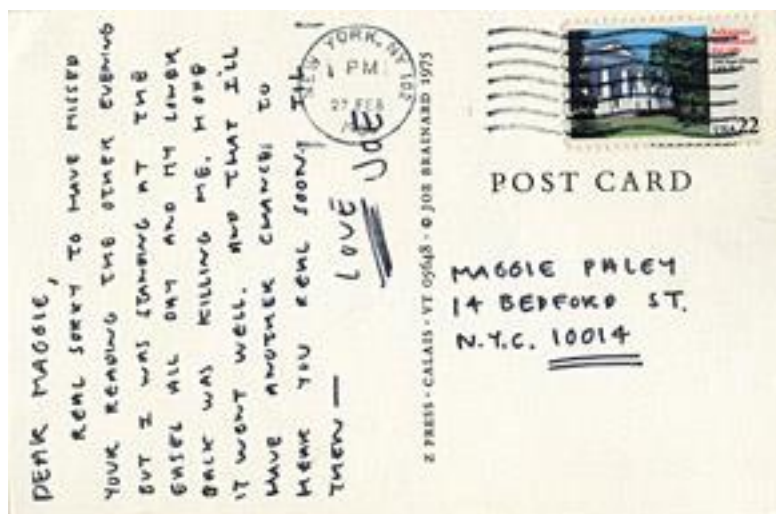 DEAR MAGGIE,
REAL SORRY TO HAVE MISSED
YOUR READING THE OTHER EVENING
BUT I WAS STANDING AT THE
EASEL ALL DAY AND MY LOWER
BACK WAS KILLING ME. HOPE
IT WENT WELL. AND THAT I'LL
HAVE ANOTHER CHANCE TO
HEAR YOU REAL SOON. TILL
THEN —
LOVE JOE
Z PRESS · CALAIS · VT 05648 · © JOE BRAINARD 1975
NEW YORK, NY 102
1 PM
27 FEB
USA 22
POST CARD
MAGGIE PALEY
14 BEDFORD ST.
N.Y.C. 10014